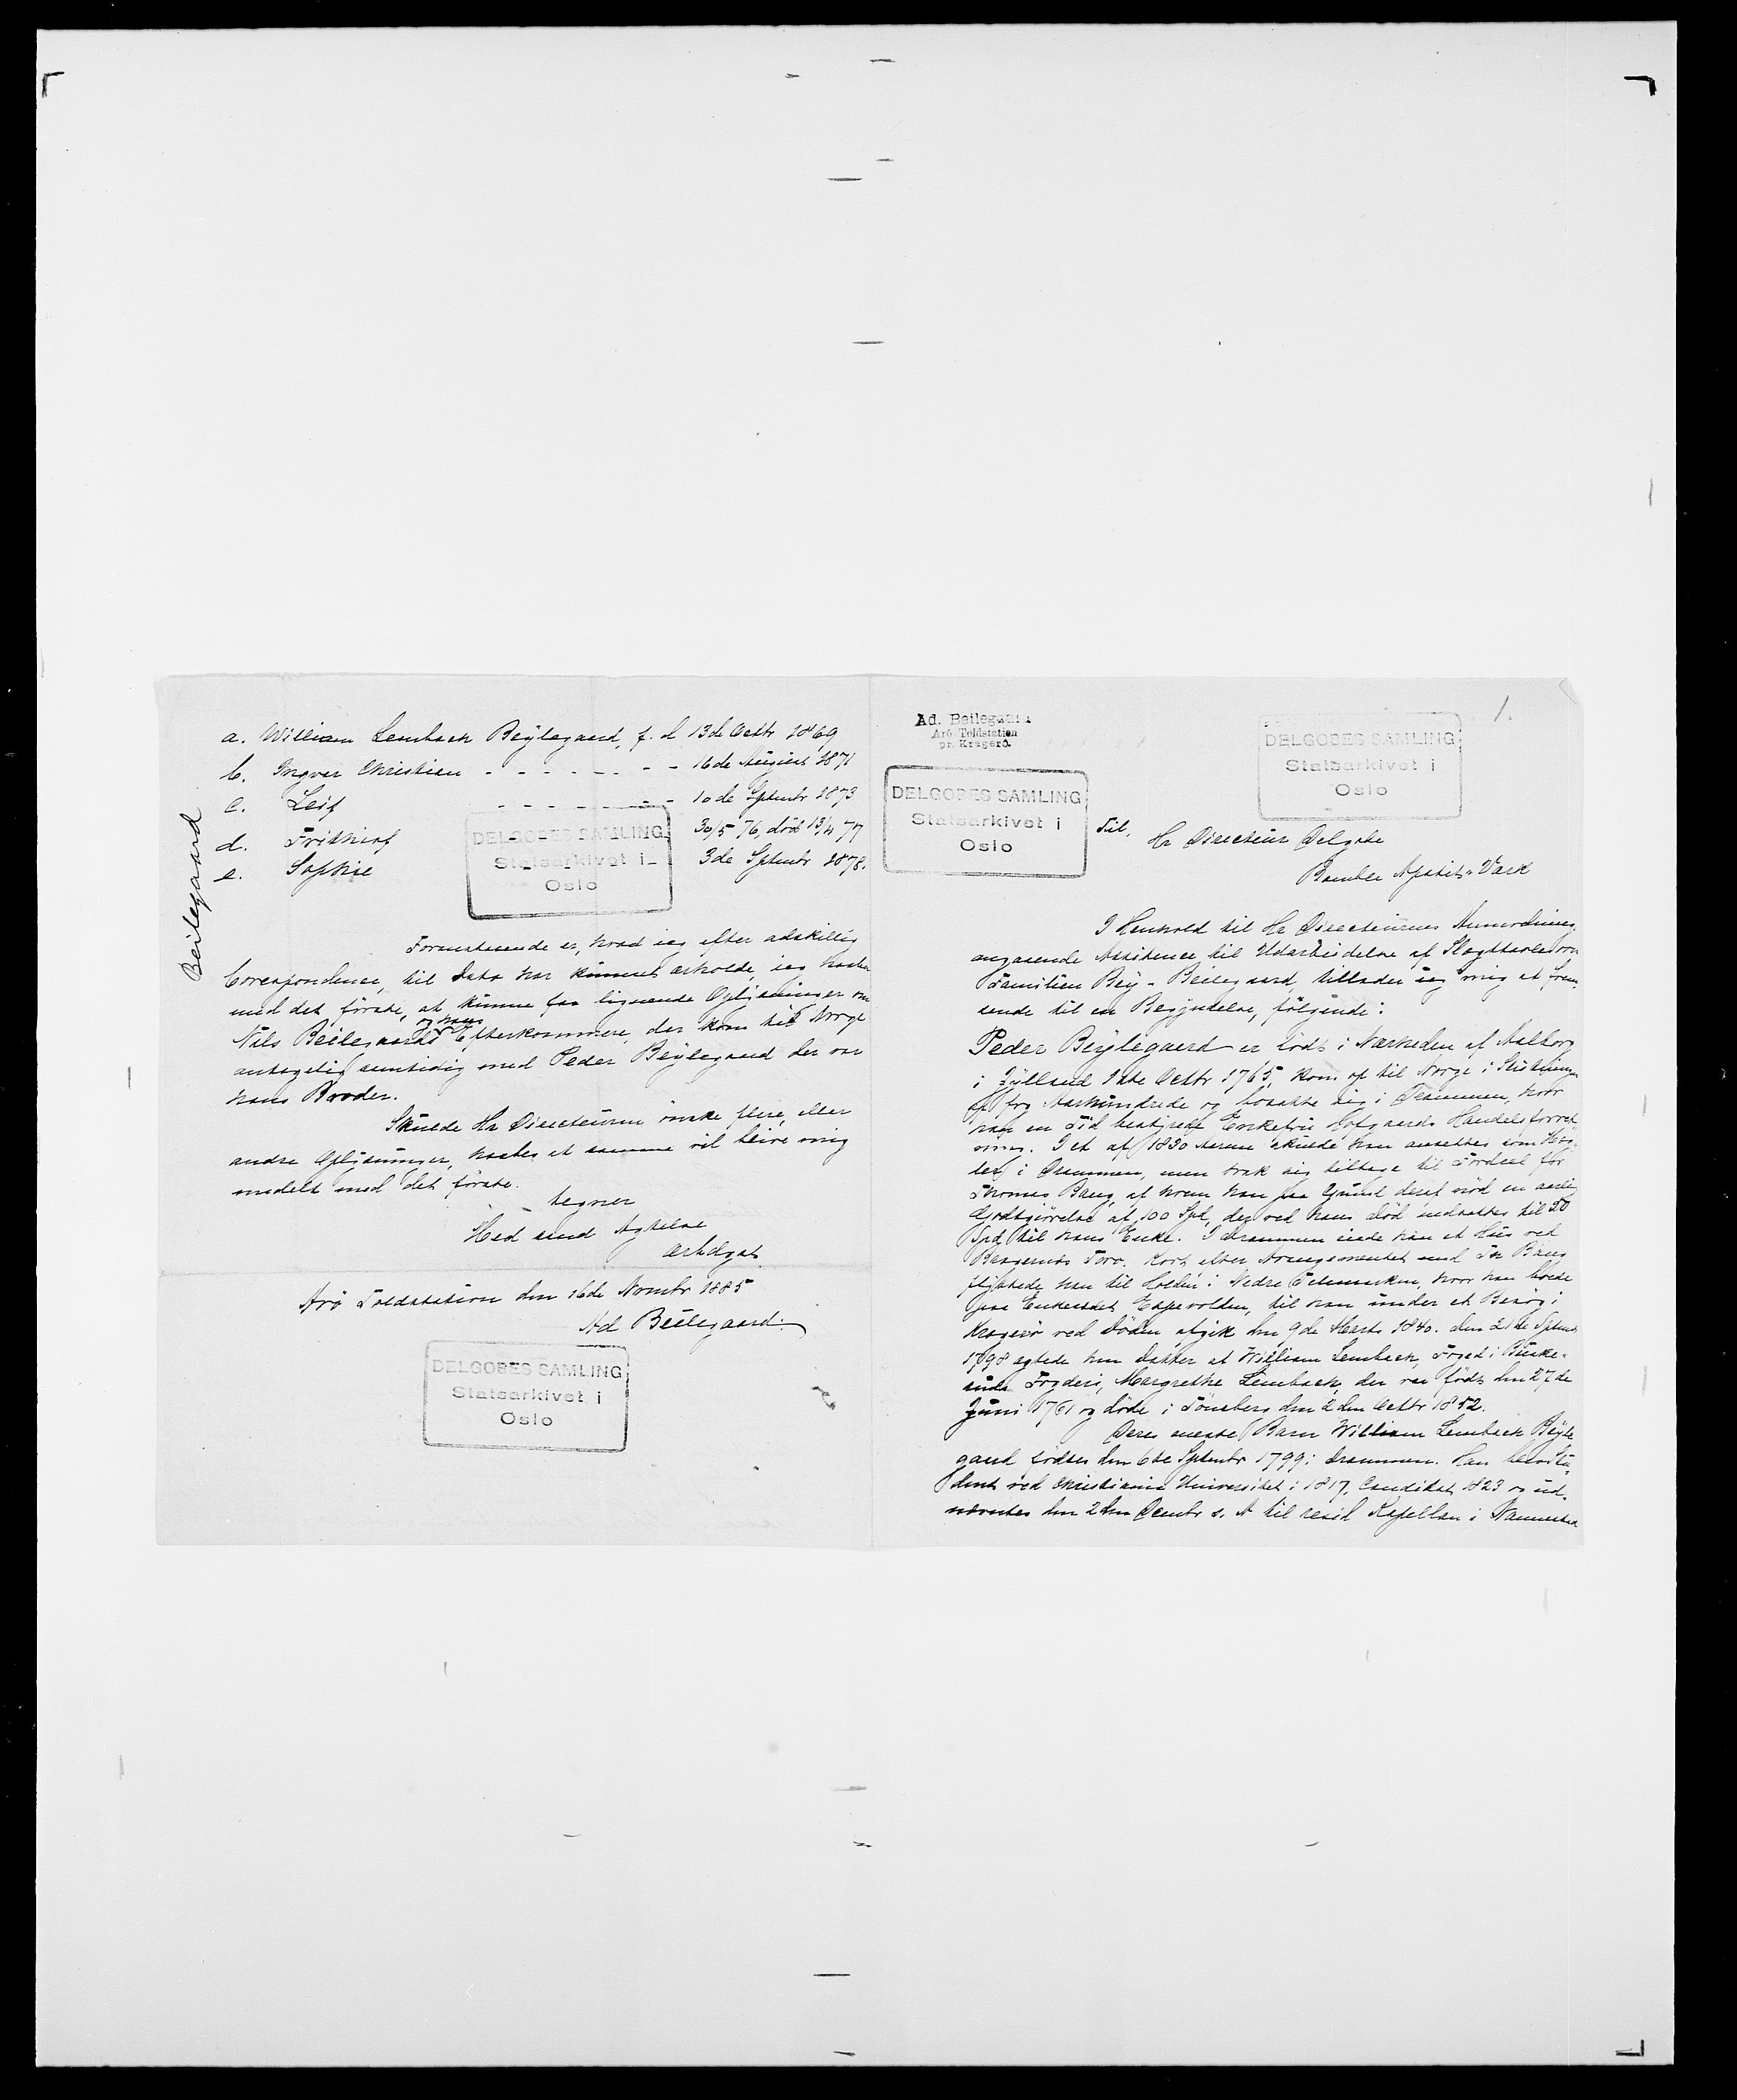 Beilegaard
a. William Lembach Beÿlegaard, f. d 13de Octbr 1869
b. Ingvar Christian - - - - - - - - 16de August 1871
c. Leif - - - - - - - 10de Septmbr 1873
d. Frithiof 30/5 76, död 13/4 77
e. Sophie - - - - 3de Septmbr 1878.
DELGOBES SAMLING
Statsarkivet i
Oslo
Foranstaaende er, hvad jeg efter adskillig
Correspondence, til Dato har kunnet erholde, jeg haaber
med det förste, at kunne faa lignende Oplysninger om
Nils Beilegaard og hans Efterkommere, der kom til Norge
antagelig samtidig med Peder Beÿlegaard der var
hans Broder.
Skulde Hr Directeuren önske flere, eller
andre Oplysninger, haabes at samme vil blive mig
meddelt med det förste.
tegner
Med sand Agtelse
Arö Toldstation den 16de Novmbr 1885
Ad Beilegaard.
DELGOBES SAMLING
Statsarkivet i
Oslo
1.
Ad. Beilegaard
Arö Toldstation
pr. Kragerö.
DELGOBES SAMLING
Statsarkivet i
Oslo
DELGOBES SAMLING
Statsarkivet i
Oslo
Til,
Hr Directeur Delgobe
Bamble Apatit-Værk
I Henhold til Hr Directeurens Anmodning
angaaende Assistence til Udarbeidelse af Slægttavle over
Familien Beÿ-Beilegaard, tillader jeg mig at frem-
sende til en Begyndelse, fölgende:
Peder Beÿlegaard er födt i Nærheden af Aalborg
i Jylland Octbr 1765, kom op til Norge i Slutningen
af for Aarhundrede og bosatte sig i Drammen, hvor
han en Tid bestyrede Enkefru Hofgaards Handelsforret-
ning. I et af 1830 Aarene skulde han ansættes som
i Drammen, men trak sig tilbage til Fordeel for
Thomas Bang, af hvem han paa Grund deraf nöd en aarlig
Godtgjörelse af 100 Spd, der ved hans Död nedsattes til 50
Spd til hans Enke. I Drammen eiede han et Huus ved
Bragernes Torv. Kort efter Arrangementet med Th Bang
flyttede han til Holden i Nedre Telemarken, hvor han boede
paa Enkesædet Espevolden, til han under et Besög i
Kragerö ved Döden afgik den 9de Marts 1840. Den 21de Septmbr
1798 egtede han Datter af William Lembach, Foged i Buske-
ruds Fogderi, Margrethe Lembach, der var födt den 27de
Juni 1761 og döde i Tönsberg den 2den Octbr 1852.
Deres eneste Barn William Lembach Beÿle
gaard födtes den 6te Septmbr 1799 i Drammen. Han blev Stu-
dent ved Christiania Universitet i 1817, Candidat 1823 og ud-
nævntes den 2den Decmbr s. A til resid Kapellan i Nannestad